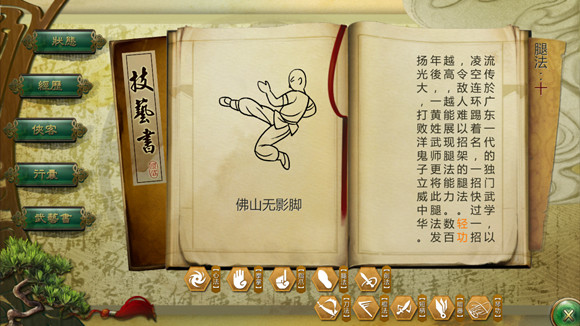 狀態
經歷
俠客
行囊
武藝書
技藝書
佛山无影脚
腿法：十
流传於广东一代的独门武学，以
凌空连环踢着名，一招快过一招
，令敌人难以招架的腿法。轻功
越高，越能展现腿法能力。数百
年後，一黄姓武师更将此腿法发
扬光大，打败洋鬼子立威中华。